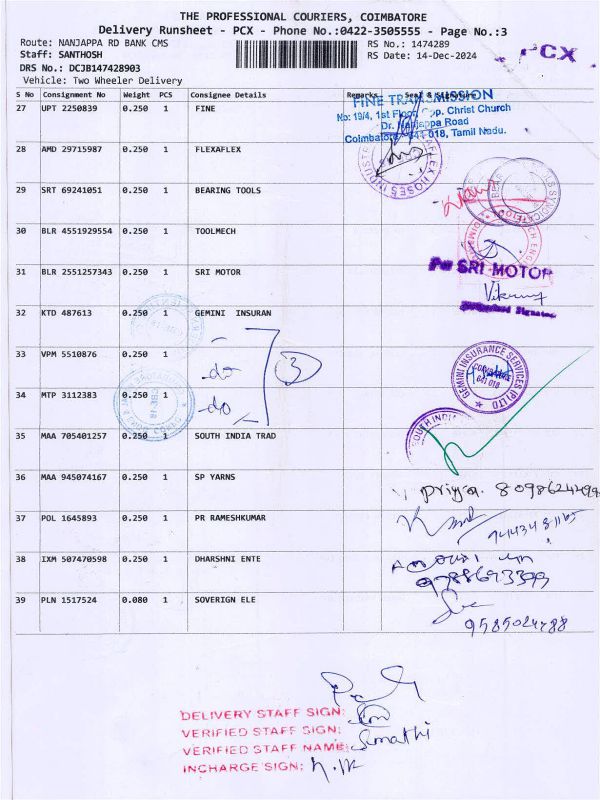 THE PROFESSIONAL COURIERS, COIMBATORE
Delivery Runsheet - PCX - Phone No.:0422-3505555 - Page No.:3
Route: NANJAPPA RD BANK CMS RS No.: 1474289
Staff: SANTHOSH RS Date: 14-Dec-2024
PCX
DRS No.: DCJB147428903
Vehicle: Two Wheeler Delivery
S No Consignment No Weight PCS Consignee Details Remarks Seal & Signature
27 UPT 2250839 0.250 1 FINE
FINE TRANSMISSION
No: 19/4, 1st Floor, Opp. Christ Church
Dr. Nanjappa Road
Coimbatore - 641 018, Tamil Nadu.
28 AMD 29715987 0.250 1 FLEXAFLEX
29 SRT 69241051 0.250 1 BEARING TOOLS
30 BLR 4551929554 0.250 1 TOOLMECH
31 BLR 2551257343 0.250 1 SRI MOTOR
For SRI MOTOR
Authorised Signatory
32 KTD 487613 0.250 1 GEMINI INSURAN
33 VPM 5510876 0.250 1
-do- 3
GEMINI INSURANCE SERVICES (P) LTD
COIMBATORE
641 018
34 MTP 3112383 0.250 1
-do
35 MAA 705401257 0.250 1 SOUTH INDIA TRAD
SOUTH INDIA
36 MAA 945074167 0.250 1 SP YARNS
Priya.
37 POL 1645893 0.250 1 PR RAMESHKUMAR
38 IXM 507470598 0.250 1 DHARSHNI ENTE
9788693399
39 PLN 1517524 0.080 1 SOVERIGN ELE
9585024788
DELIVERY STAFF SIGN:
VERIFIED STAFF SIGN:
VERIFIED STAFF NAME: Sumathi
INCHARGE SIGN: